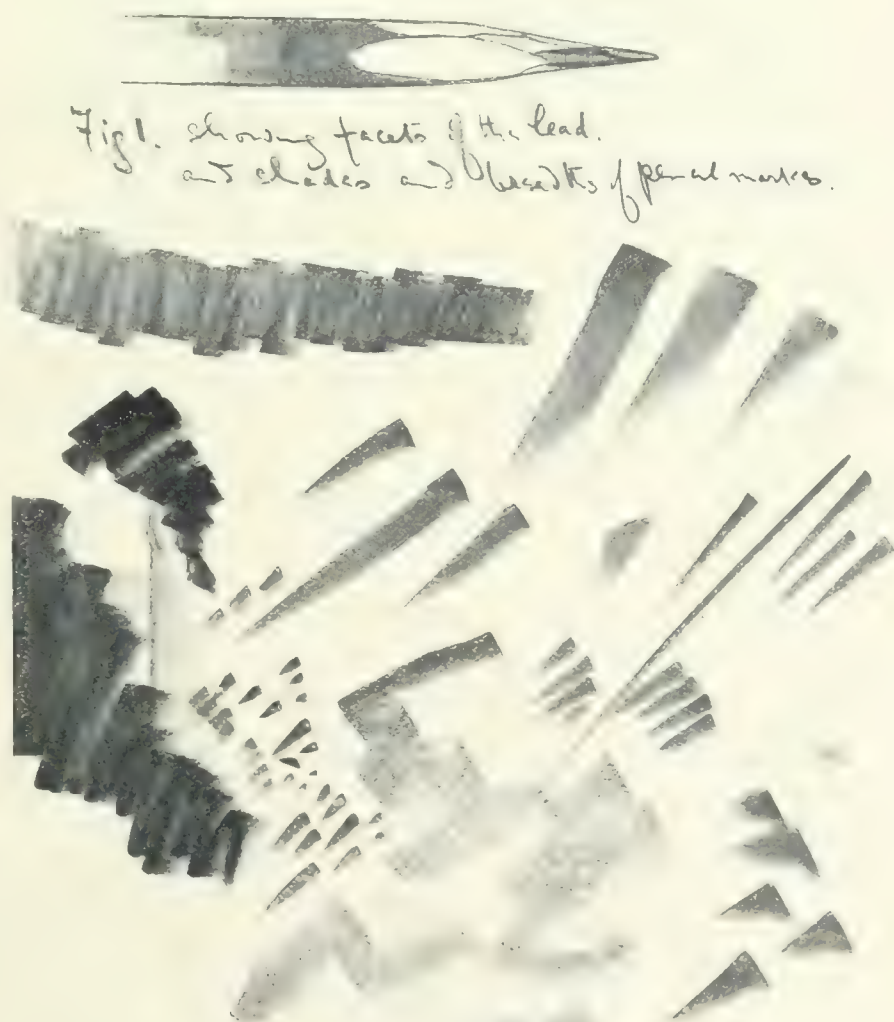 Fig 1. showing facets of the lead.
and shades and breadths of pencil marks.